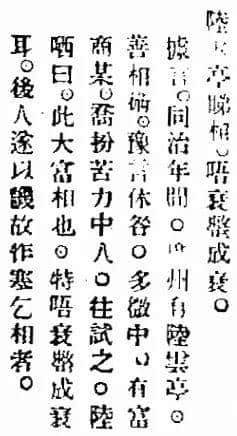 陸亭睇相。唔衰整成衰。
據言。同治年間。廣州有陸雲亭。
善相。豫言休咎。多微中。有富
商某。喬扮苦力中人。往試之。陸
哂曰。此大富相也。特唔衰整成衰
耳。後人遂以譏故作寒乞相者。